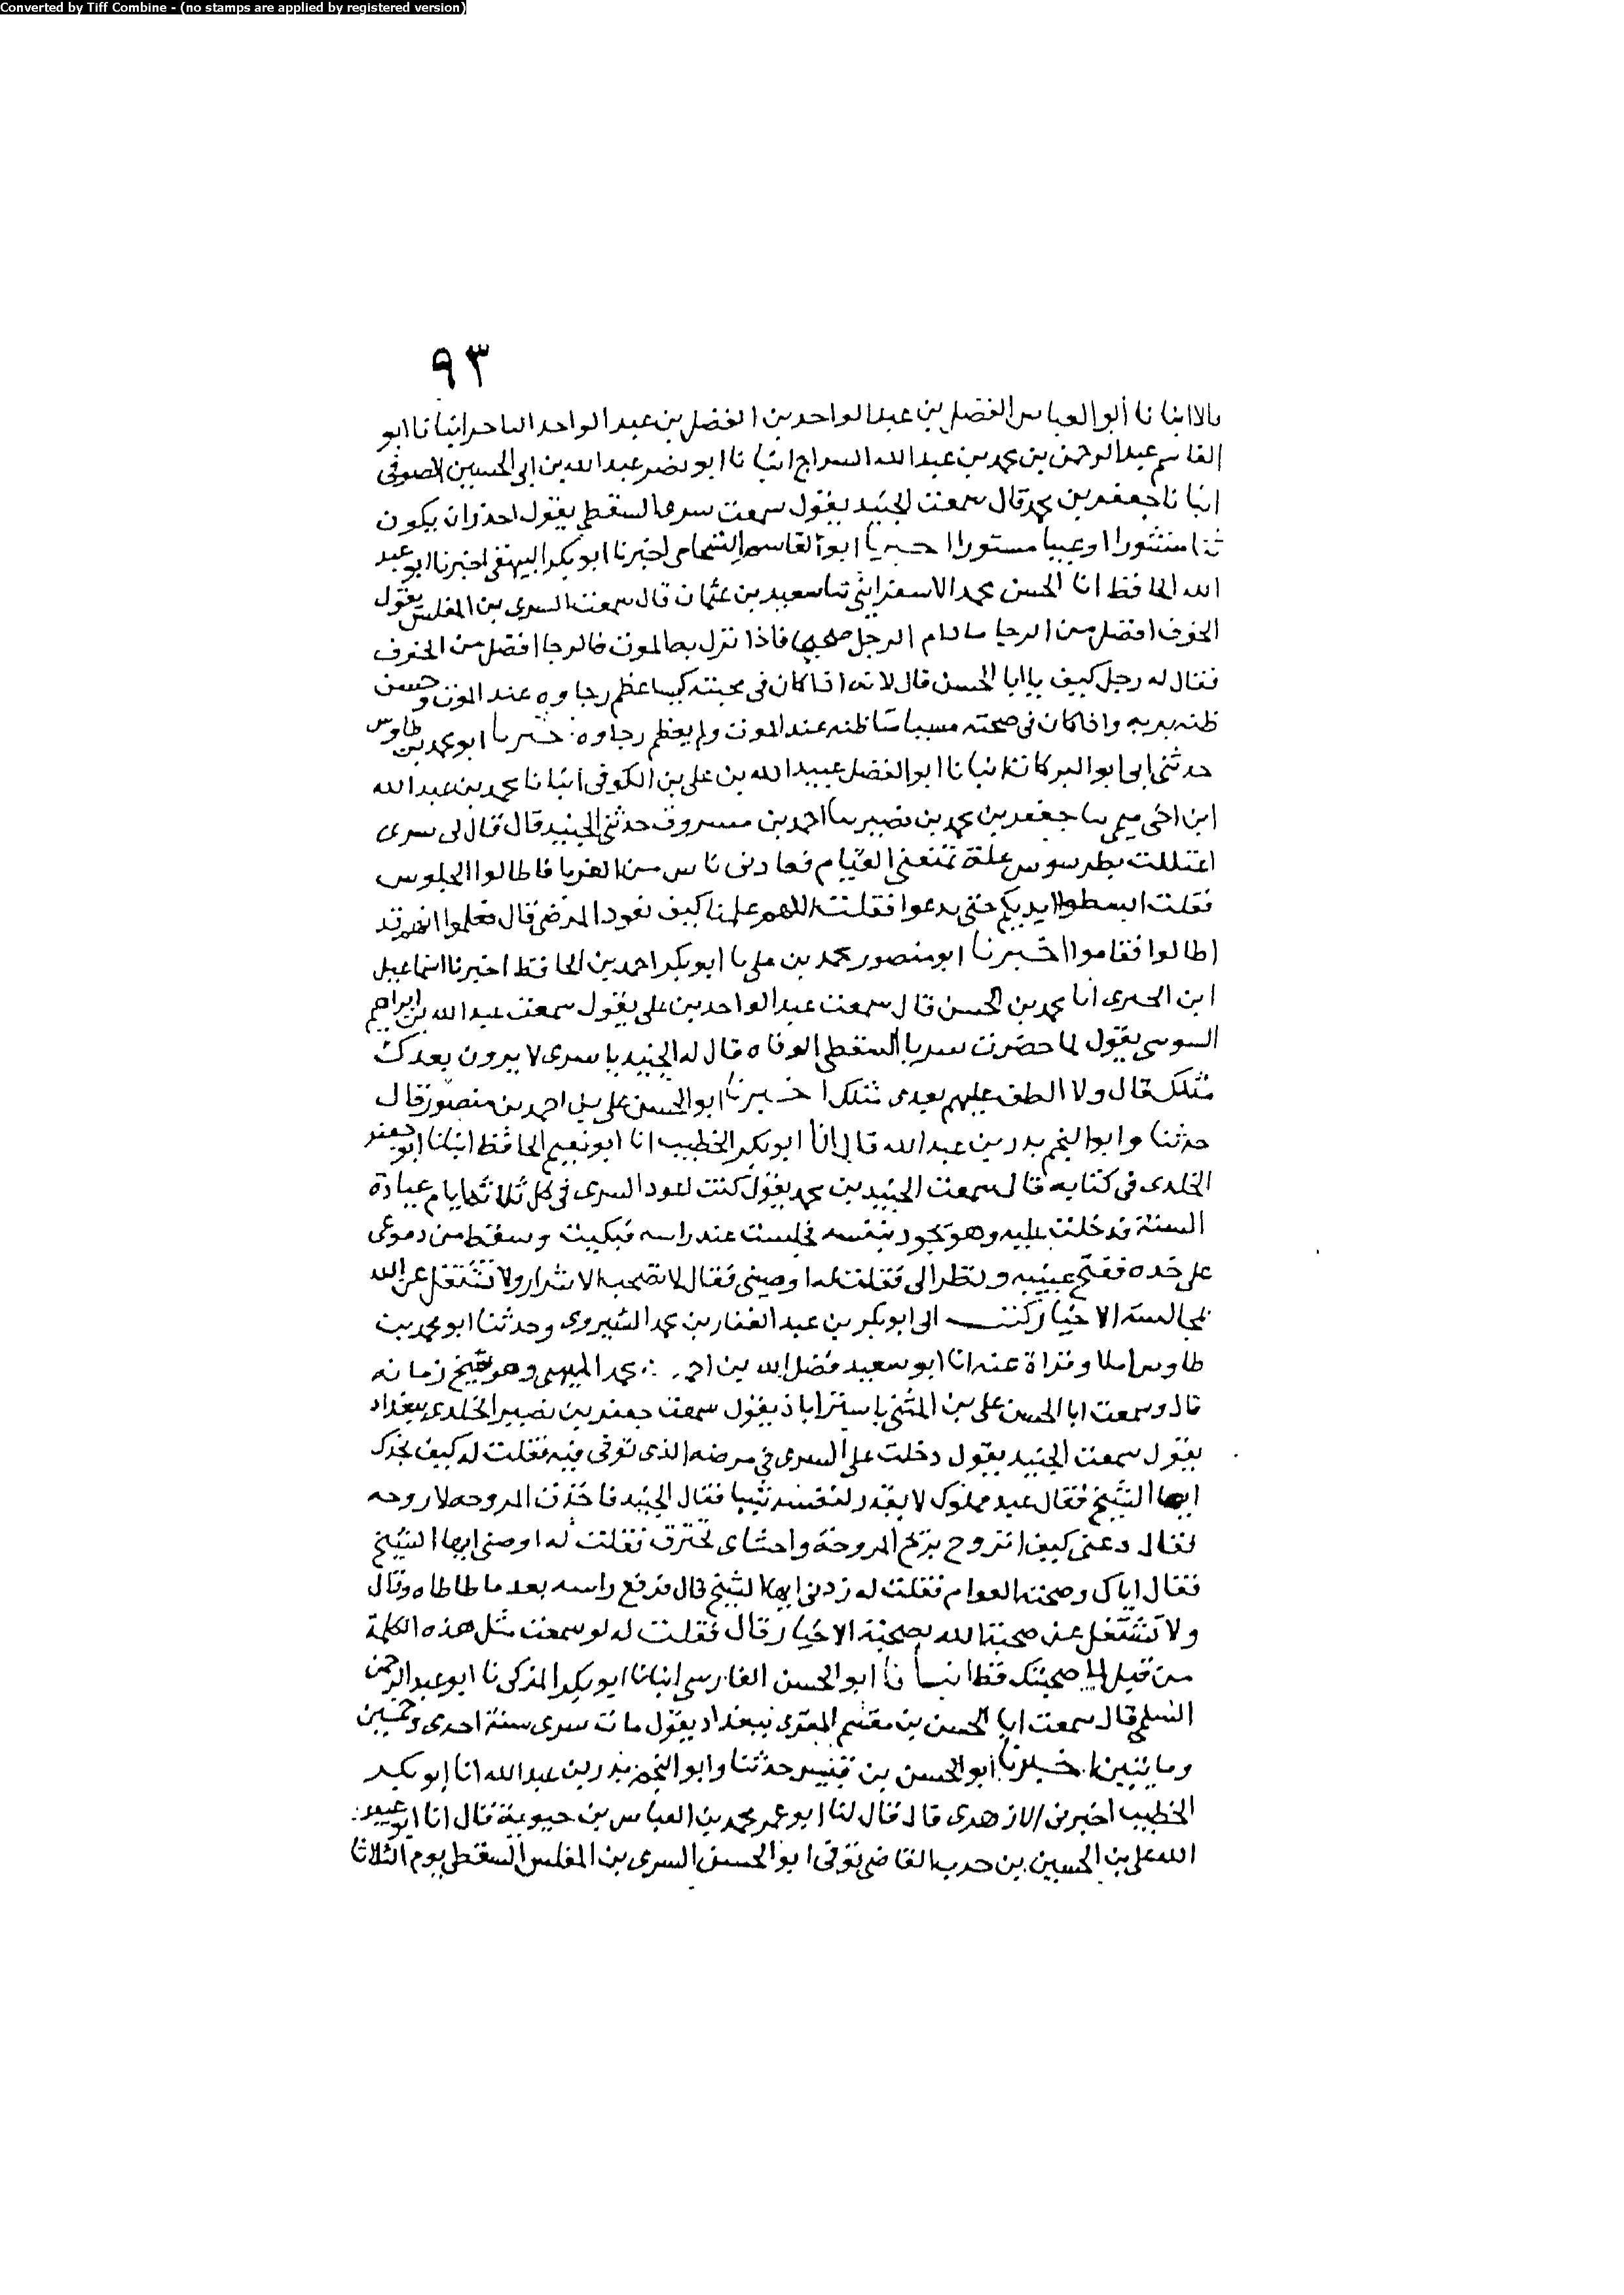 Converted by Tiff Combine - (no stamps are applied by registered version)
٩٣
انبانا أبو العباس الفضل بن عبد الواحد بن الفضل بن عبد الواحد انبانا ابو
القاسم عبد الرحمن بن محمد بن عبد الله السراج انبانا ابو نصر عبد الله بن ابي الحسين الصوفي
انبانا جعفر بن محمد قال سمعت الجنيد يقول سمعت سريا السقطي يقول احذر ان يكون
ثنا منثورا وعيبا مستورا اخبرنا ابو القاسم الشحامي اخبرنا ابو بكر البيهقي اخبرنا ابو عبد
الله الحافظ انا الحسن محمد الاسفرايني ثنا سعيد بن عثمان قال سمعت السري بن المغلس يقول
الخوف افضل من الرجا ما دام الرجل صحيحا فاذا نزل به الموت فالرجا افضل من الخوف
فقال له رجل كيف يا ابا الحسن قال لانه اذا كان في محبته كيسا عظم رجاوه عند الموت وحسن
ظنه بربه واذا كان في صحته مسيا سا ظنه عند الموت ولم يعظم رجاوه اخبرنا ابو محمد بن طاوس
حدثني ابي ابو البركات انبانا ابو الفضل عبيد الله بن علي بن الكوفي انبانا محمد بن عبد الله
ابن اخي ميمي نا جعفر بن محمد بن نصير نا احمد بن مسروق حدثني الجنيد قال قال لي سري
اعتللت بطرسوس علة تمنعني القيام فعادني ناس من القربا فاطالوا الجلوس
فقلت ابسطوا ايديكم حتى ندعوا فقلت اللهم علمنا كيف نعود المرضى قال فعلموا انهم قد
اطالوا فقاموا اخبرنا ابو منصور محمد بن علي نا ابو بكر احمد بن الحافظ اخبرنا اسماعيل
ابن الحيرى انا محمد بن الحسن قال سمعت عبد الواحد بن علي يقول سمعت عبد الله بن ابراهيم
السوسي يقول لما حضرت سريا السقطي الوفاه قال له الجنيد يا سرى لا يرون بعدك
مثلك قال ولا الطف عليهم بعدى مثلك اخبرنا ابو الحسن علي بن احمد بن منصور قال
حدثنا وابو النجم بدر بن عبد الله قال انا ابو بكر الخطيب انا ابو نعيم الحافظ انبانا ابو جعفر
الخلدى في كتابه قال سمعت الجنيد بن محمد يقول كنت اعود السرى في كل ثلاثة ايام عيادة
السنة فدخلت عليه وهو يجود بنفسه فجلست عند راسه فبكيت وسقط من دموعي
على خده ففتح عينيه ونظر الى فقلت له اوصيني فقال لا تصحب الاشرار ولا تشتغل عن الله
بمجالسة الاخيار كتب الى ابو بكر بن عبد الغفار بن محمد الشيروى وحدثنا ابو محمد بن
طاوس املا وقراة عنه انا ابو سعيد فضل الله بن محمد الميهنى وهو شيخ زمانه
قال وسمعت ابا الحسن على بن المثنى باستراباذ يقول سمعت جعفر بن نصير الخلدى ببغداد
يقول سمعت الجنيد يقول دخلت على السرى في مرضه الذى توفى فيه فقلت له كيف تجدك
ايها الشيخ فقال عبد مملوك لا يقدر لنفسه شيا فقال الجنيد فاخذت المروحه لاروحه
فقال دعني كيف اتروح بريح المروحة واحشاى تحترق فقلت له اوصني ايها الشيخ
فقال اياك وصحبة العوام فقلت له زدني ايها الشيخ قال فرفع راسه بعد ما طاطاه وقال
ولا تشتغل عن صحبة الله بصحبة الاخيار قال فقلت له لو سمعت مثل هذه الكلمة
من قبل لما صحبتك قط انبانا ابو الحسن الفارسي انبانا ابو بكر المزكى نا ابو عبد الرحمن
السلمي قال سمعت ابا الحسن بن مقسم المقرى ببغداد يقول مات سرى سنة احدى وخمسين
وما يتين اخبرنا ابو الحسن بن قبيس حدثنا وابو النجم بدر بن عبد الله انا ابو بكر
الخطيب اخبرني الازهرى قال قال لنا ابو عمر محمد بن العباس بن حيوية قال انا ابو عبيد
الله علي بن الحسين بن حرب القاضي توفى ابو الحسن السرى بن المغلس السقطي يوم الثلاثا